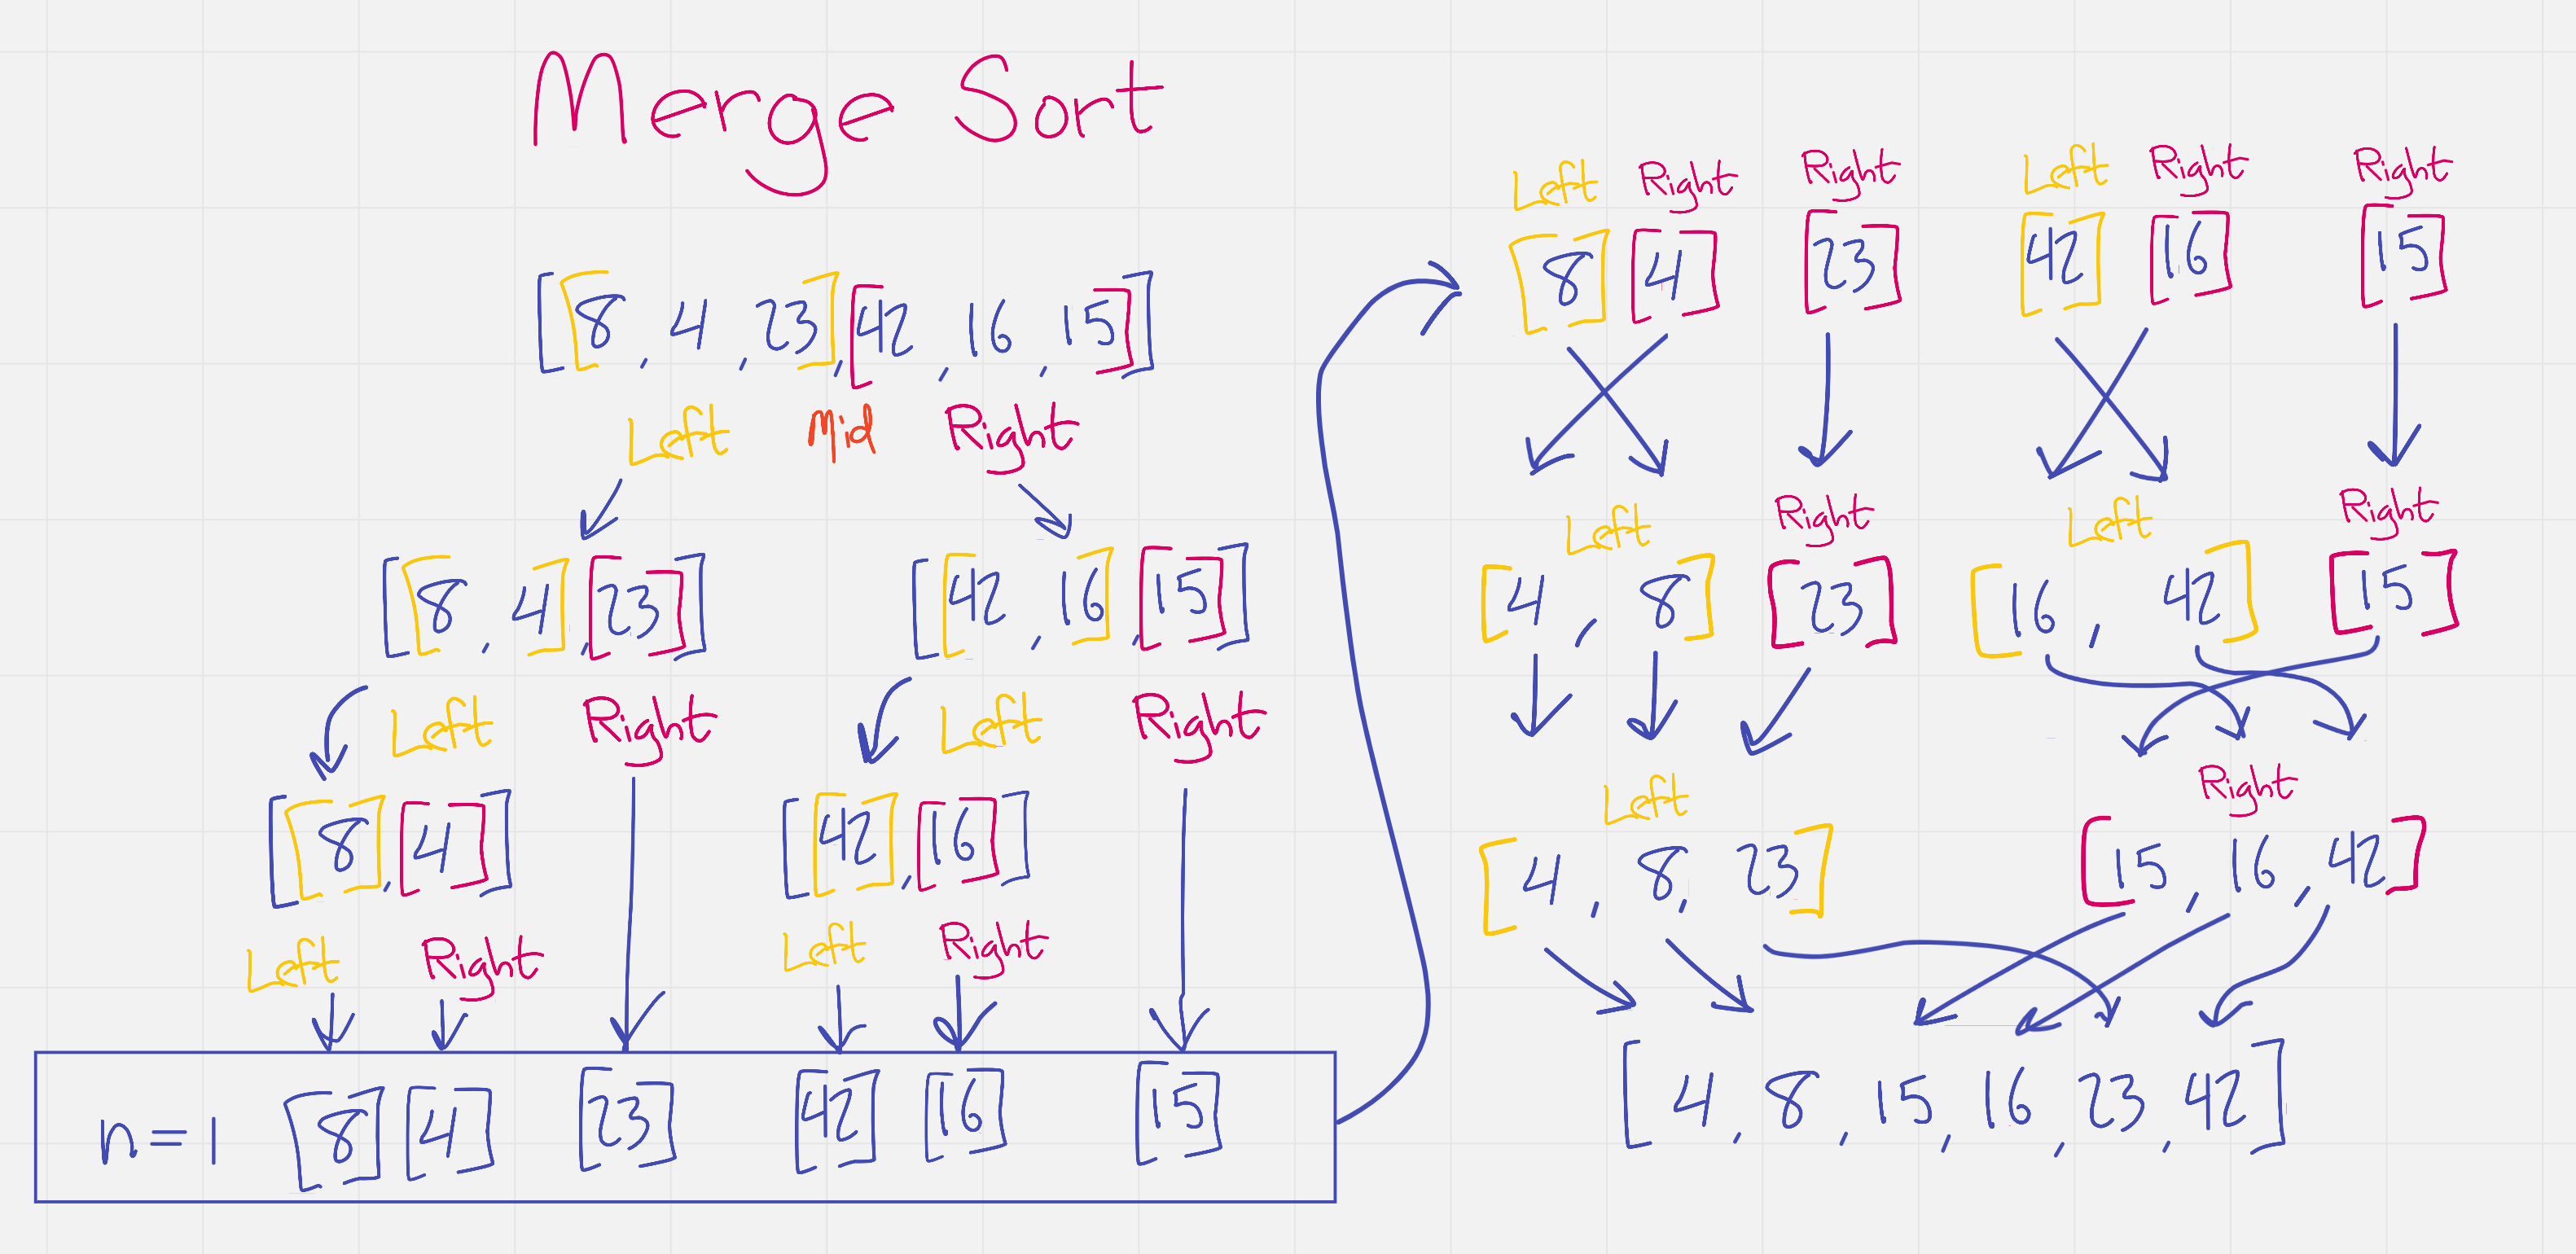 Merge Sort
[[8, 4, 23],[42, 16, 15]]
Left Mid Right
[[8, 4],[23]] [[42, 16],[15]]
Left Right Left Right
[[8],[4]] [[42],[16]]
Left Right Left Right
n=1 [8] [4] [23] [42] [16] [15]
Left Right Right Left Right Right
[8] [4] [23] [42] [16] [15]
Left Right Left Right
[4, 8] [23] [16, 42] [15]
Left Right
[4, 8, 23] [15, 16, 42]
[4, 8, 15, 16, 23, 42]